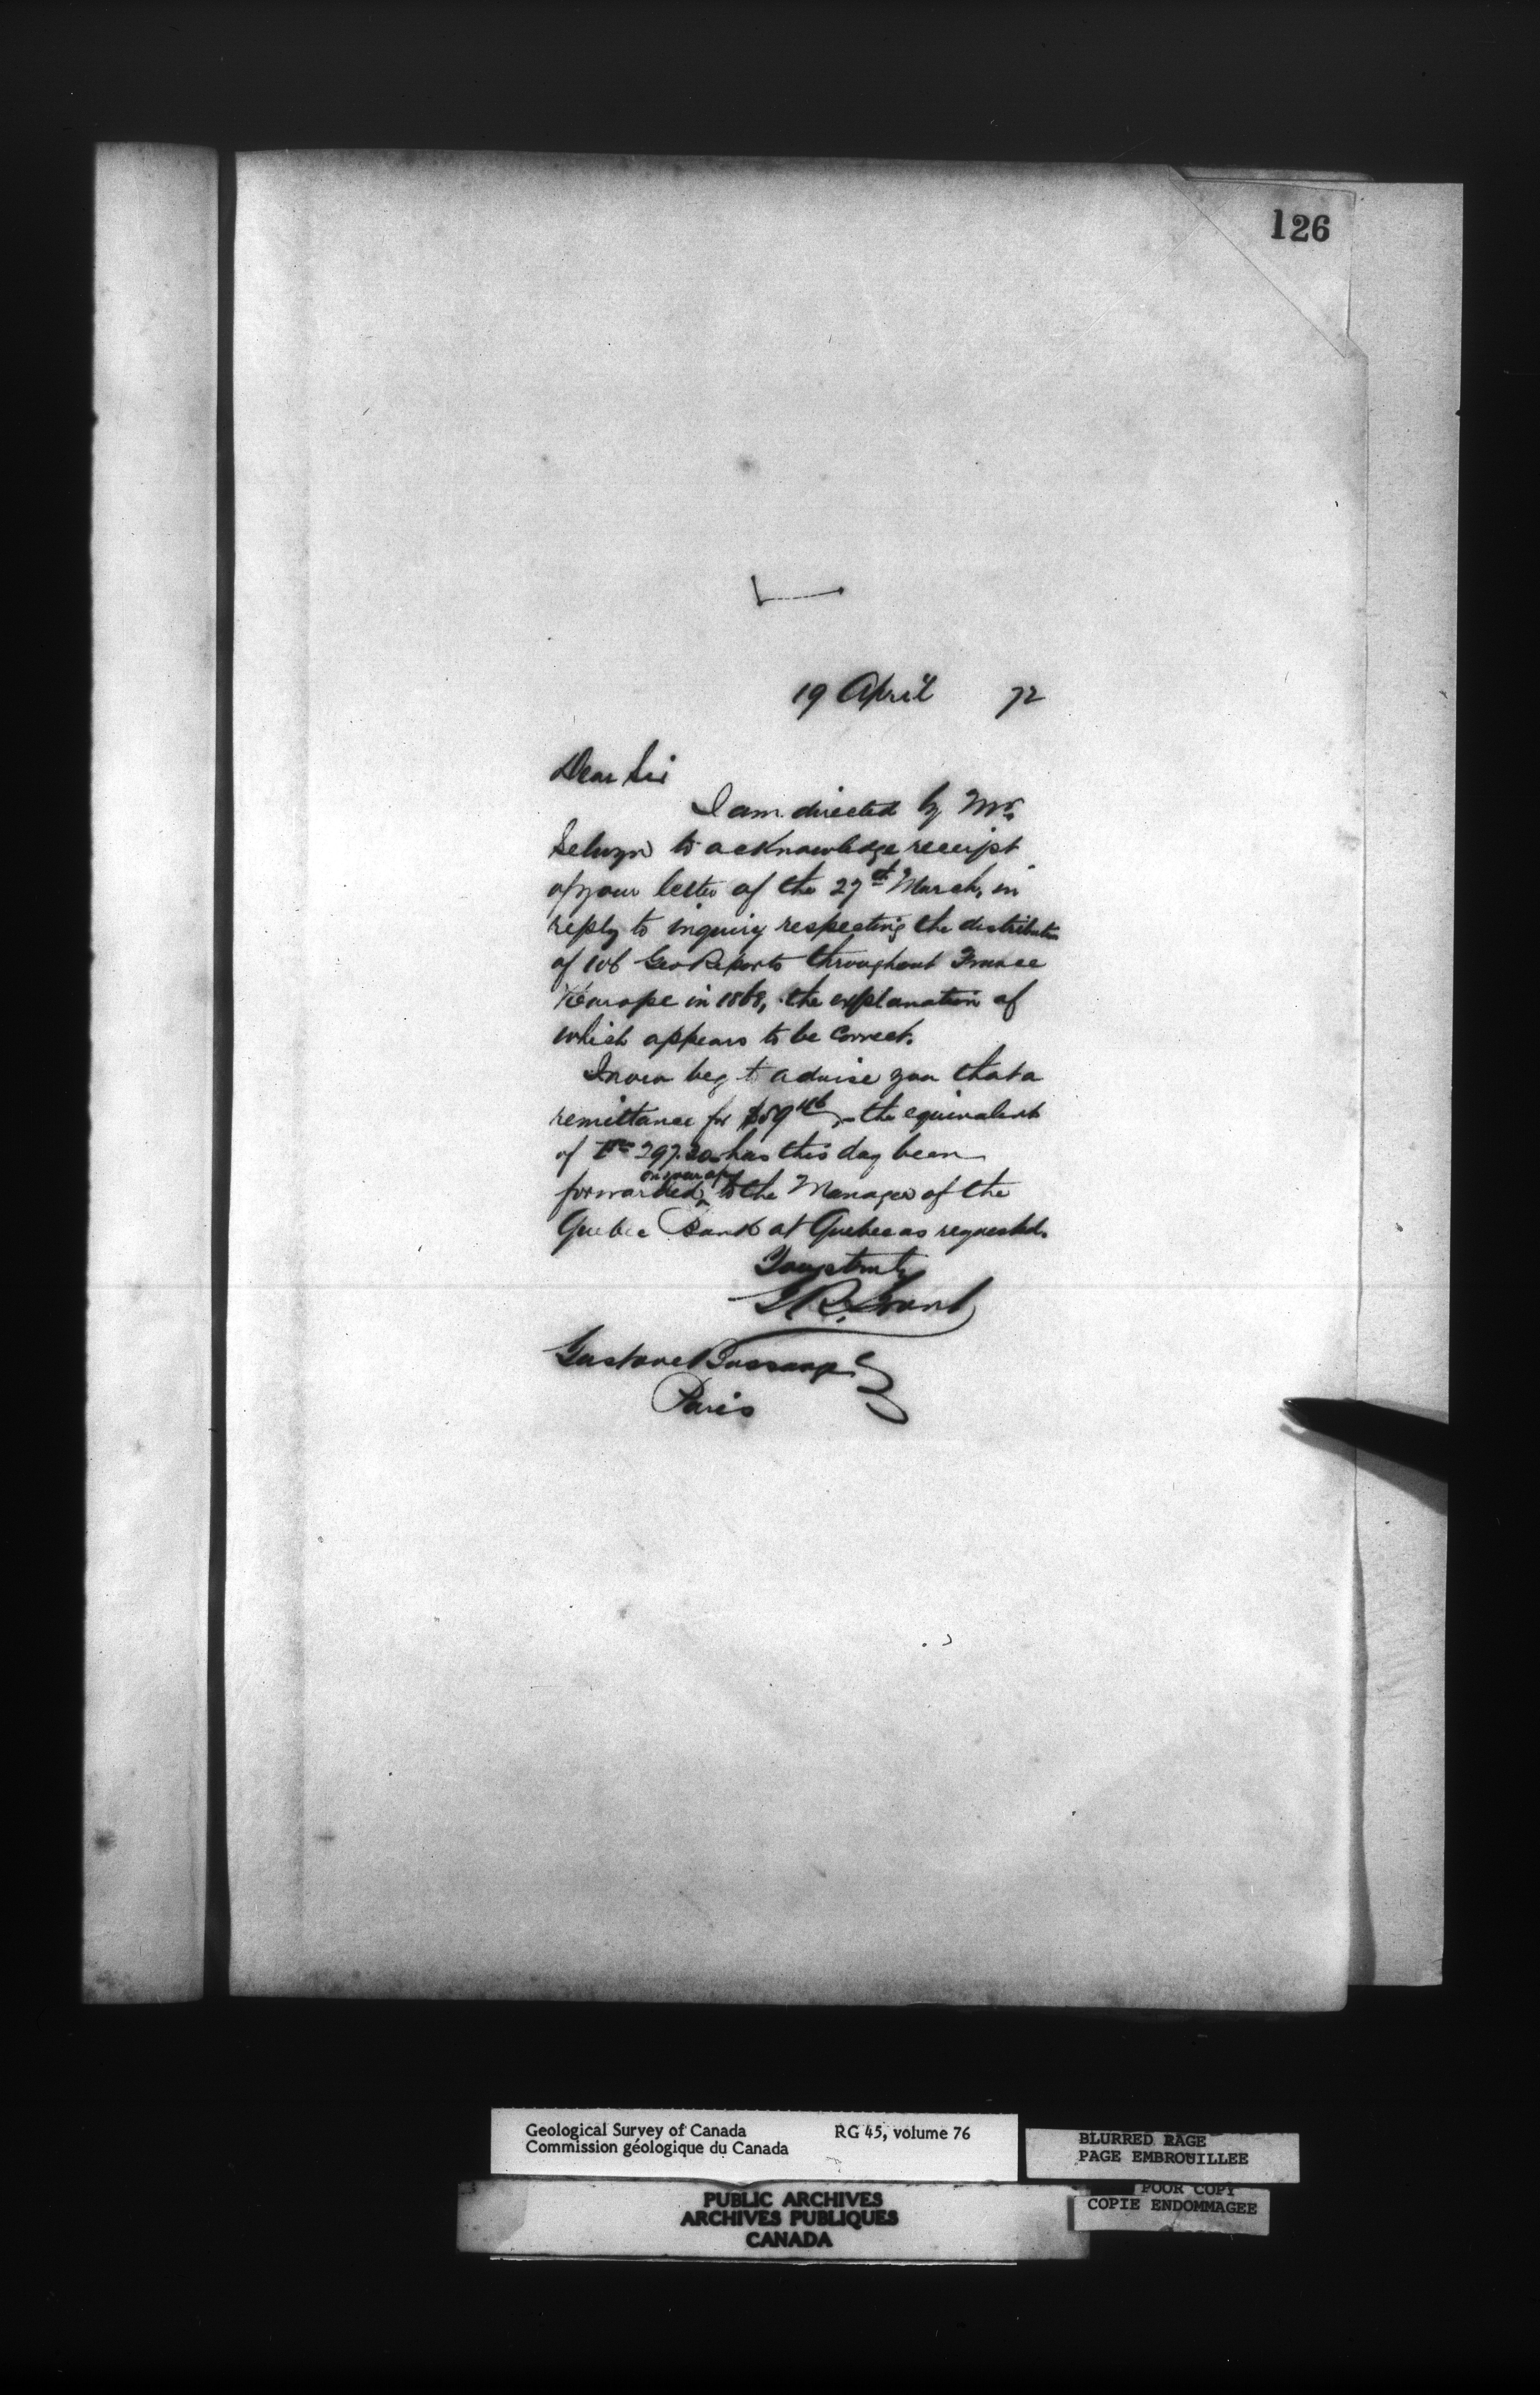 126
19 April 72
Dear Sir
I am directed by Mr.
Selwyn to acknowledge receipt
of your letter of the 27th March, in
reply to inquiry respecting the distribution
of 106 Geo Reports throughout France
& Europe in 1868, the explanation of
which appears to be correct.
I now beg to advise you that a
remittance for $59 46 - the equivalent
of 297.30 has this day been
on your a/c
forwarded to the Manager of the
Quebec Bank at Quebec as requested.
Yours truly
G R Grant
Gustave Bossange
Paris
Geological Survey of Canada RG 45, volume 76
Commission géologique du Canada
BLURRED PAGE
PAGE EMBROUILLEE
POOR COPY
COPIE ENDOMMAGEE
PUBLIC ARCHIVES
ARCHIVES PUBLIQUES
CANADA